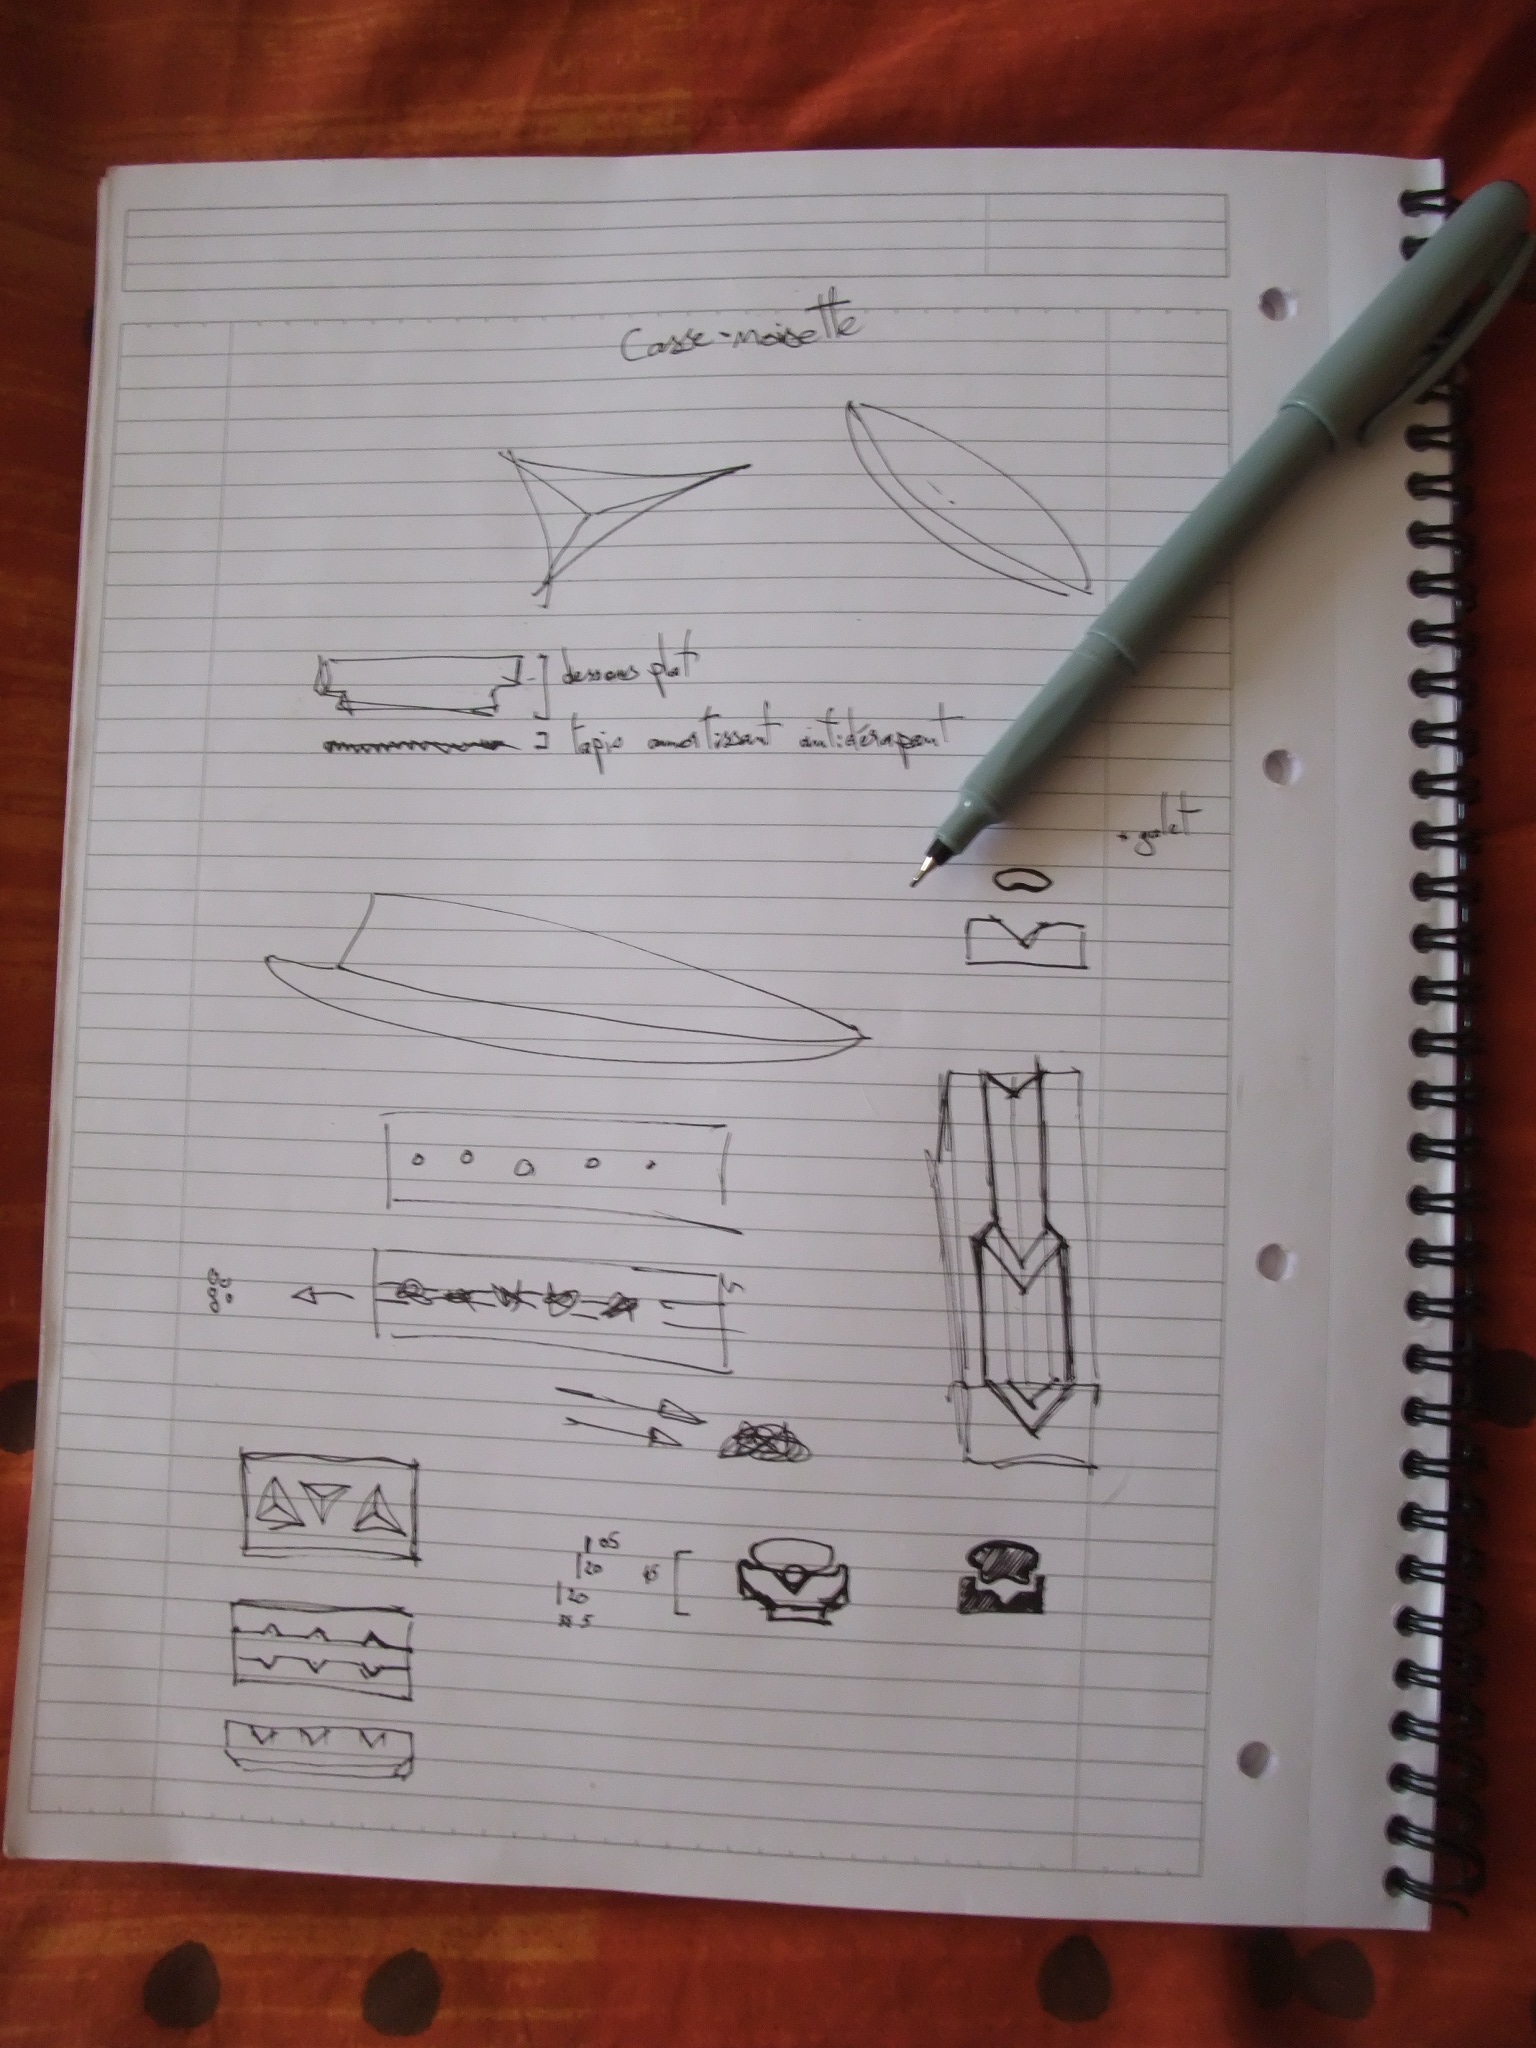 Casse-noisette
dessous plat
tapis amortissant antidérapant
+ galet
05
20
45
20
5